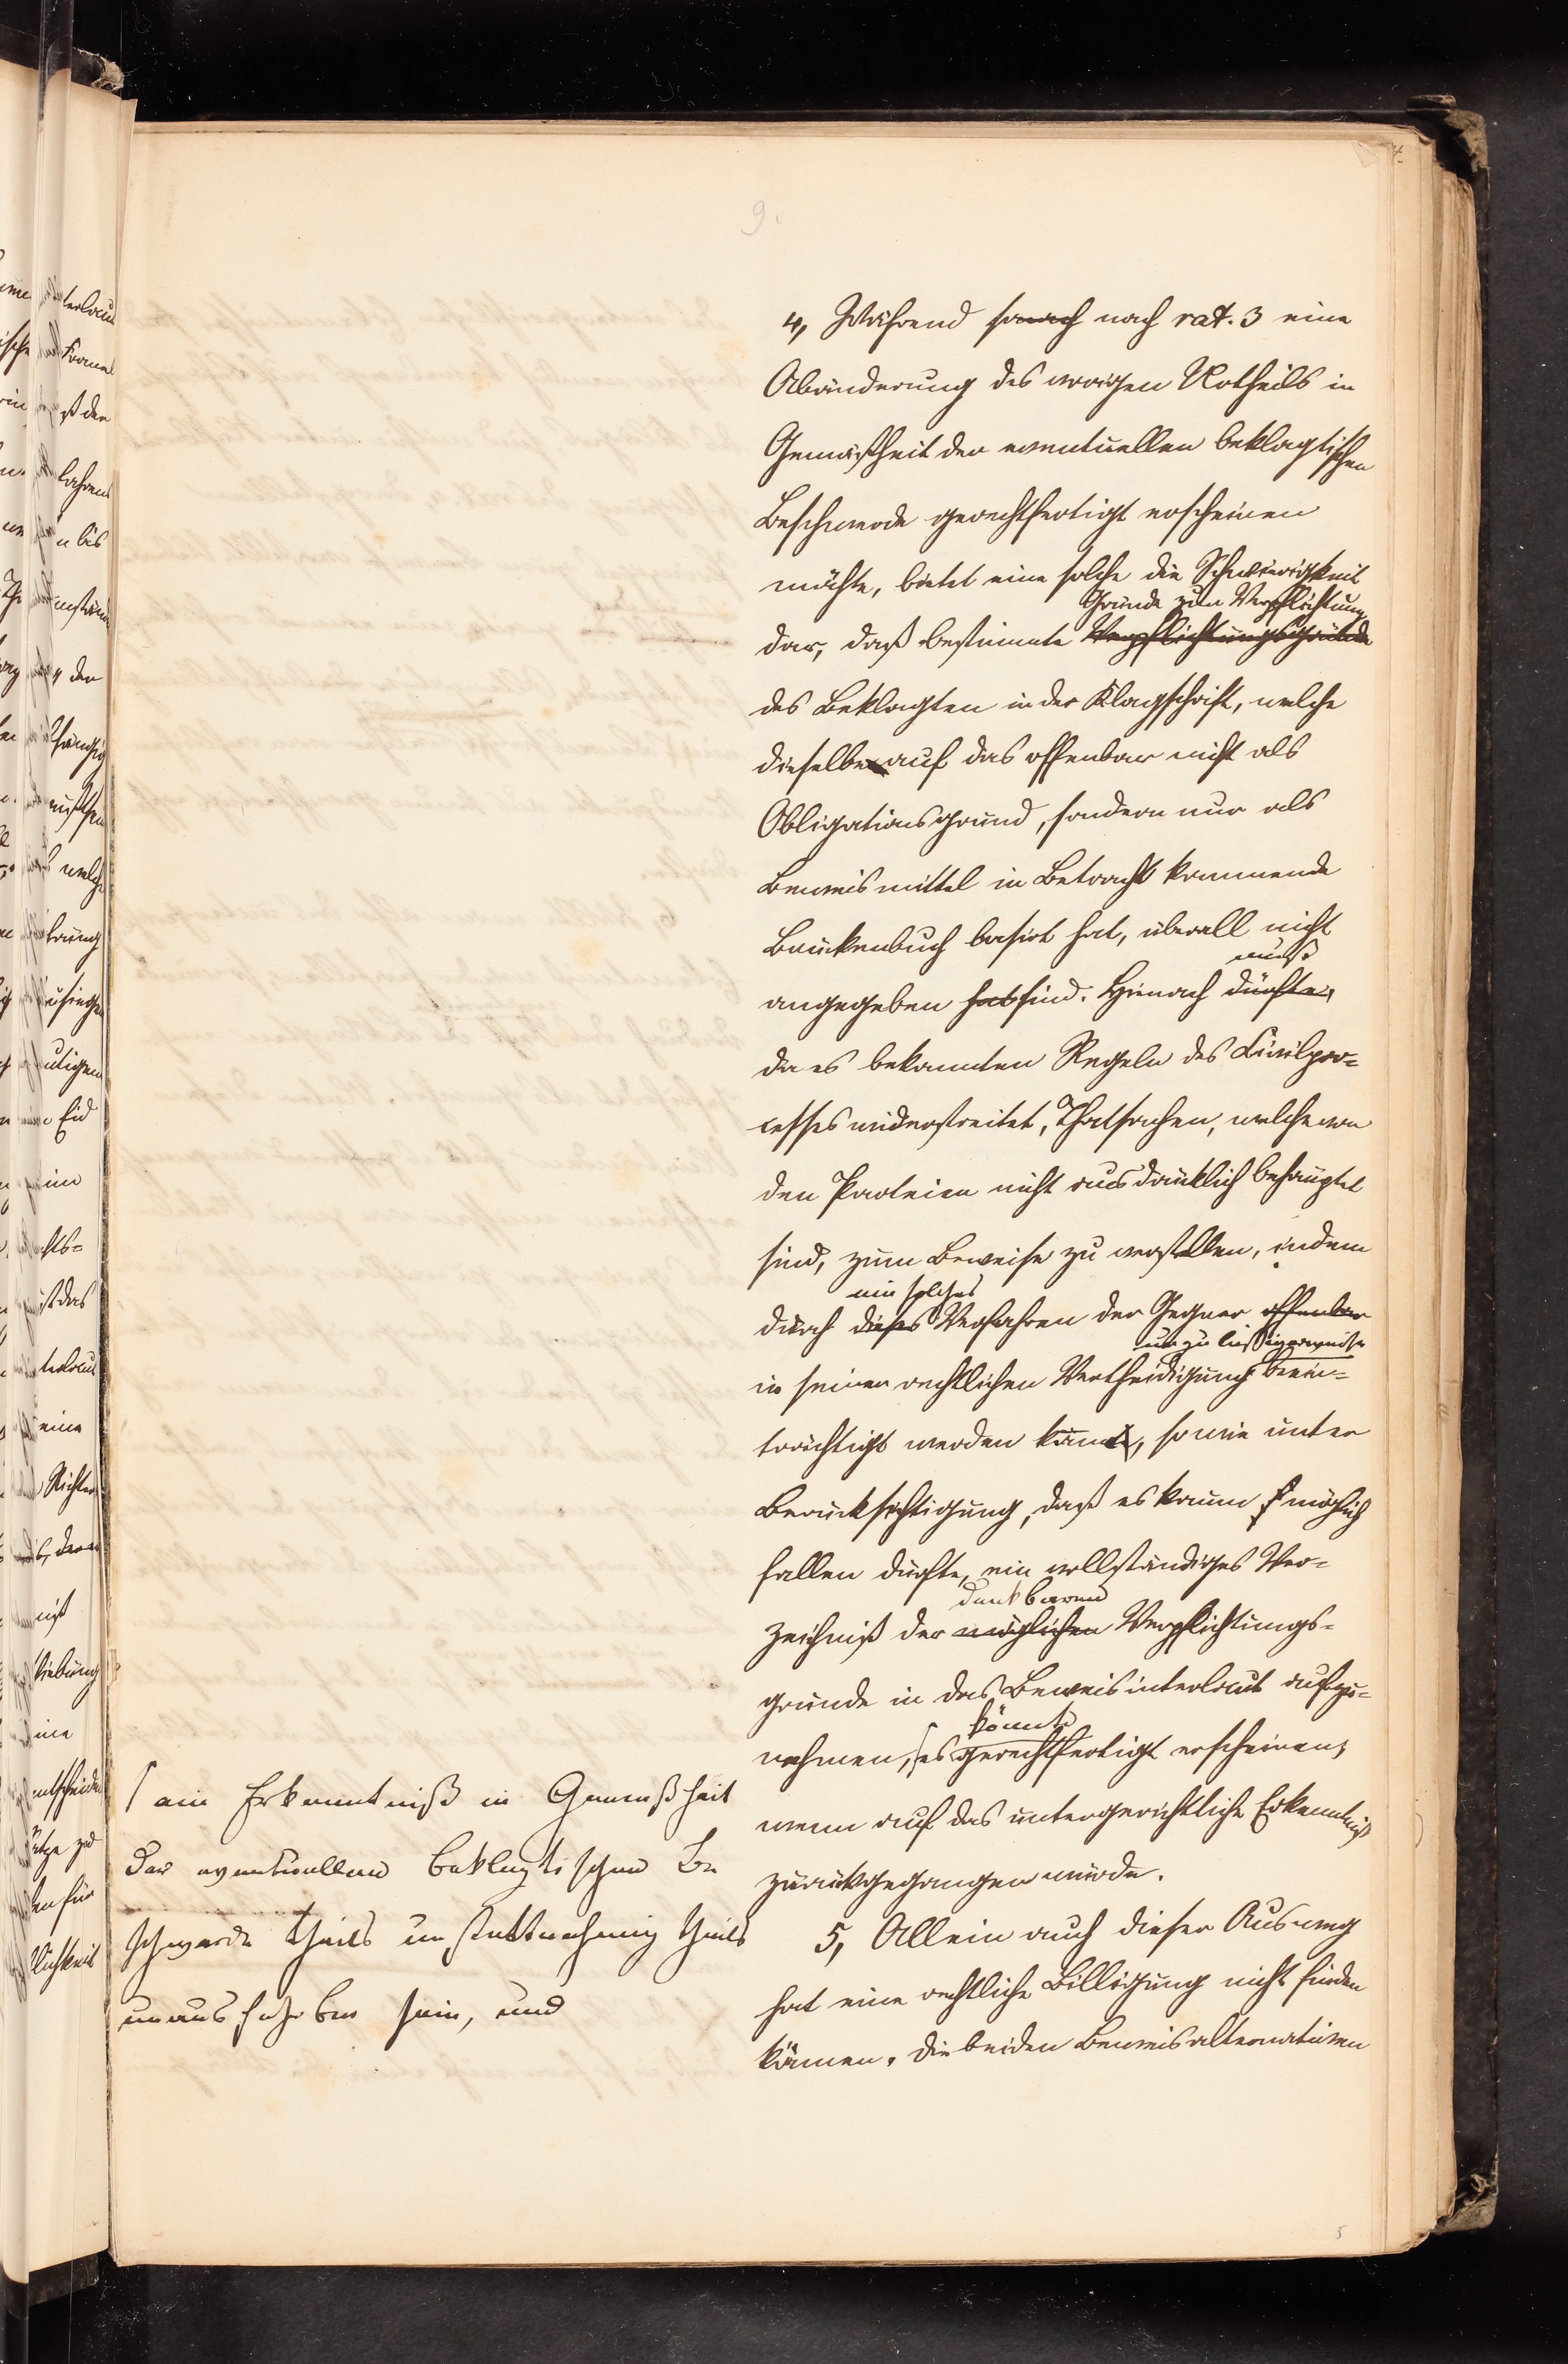 9.
4, Während sonach nach rat. 3 eine
Abänderung des vorigen Urtheils in
Gemäßheit der eventuellen beklagtischen
Beschwerde gerechtfertigt erscheinen
möchte, bietet eine solche die Schwierigkeit
Gründe zur Verpflichtung
dar, daß bestimmte Verpflichtungsgründe
des Beklagten in der Klagschrift, welche
dieselbe auf das offenbar nicht als
Obligationsgrund, sondern nur als
Beweismittel in Betracht kommende
Bankenbuch basirt hat, überall nicht
muß
angegeben hat sind. Hienach dürfte,
da es bekannten Regeln des Civilpro-
cesses widerstreitet, Thatsachen, welche von
den Parteien nicht ausdrücklich behauptet
sind, zum Beweise zu verstellen, indem
ein solches
durch dieses Verfahren der Gegner offenbar
unzulässigerweise
in seiner rechtlichen Vertheidigung beein-
trächtigt werden kann, sowie unter
Berücksichtigung, daß es kaum möglich
fallen dürfte, ein vollständiges Ver-
denkbaren
zeichniß der möglichen Verpflichtungs-
gründe in das Beweisinterlocut aufzu-
könnte
nehmen, es gerechtfertigt erscheinen,
wenn auf das untergerichtliche Erkenntniß
zurückgegangen würde.
5, Allein auch dieser Ausweg
hat eine rechtliche Billigung nicht finden
können. Die beiden Beweisalternativen
ein Erkenntniß in Gemäßheit
der eventuellen beklagtischen Be
schwerde theils unstattnehmig theils
unausführbar sein, und